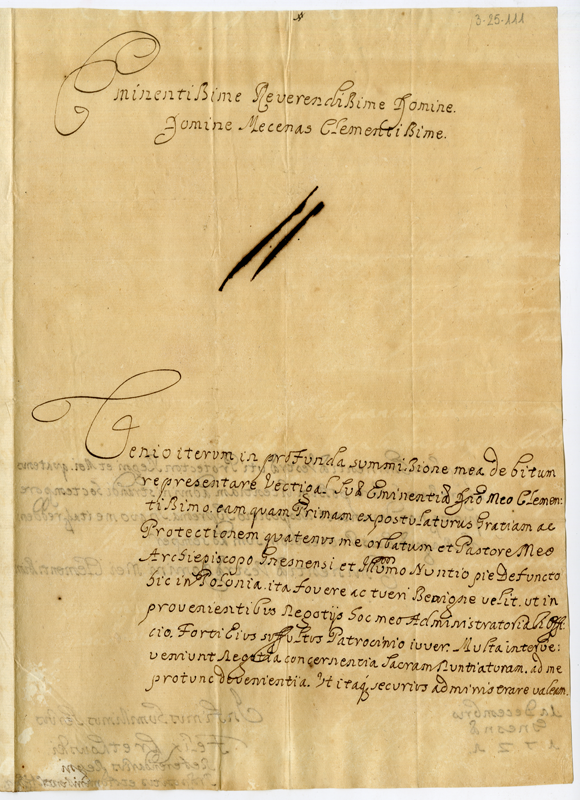 3-25-111
Eminentissime Reverendissime Domine.
Domine Mecenas Clementissime.
Venio iterum in profunda summissione mea debitum
representare Vectigal Suæ Eminentiæ Dño Meo Clemen:
tissimo. eam quam Primam expostulaturus Gratiam ac
Protectionem quatenus me orbatum et Pastore Meo
Archiepiscopo Gnesnensi et Illmo Nuntio pie Defuncto
hic in Polonia. ita fovere ac tueri Benigne velit. ut in
provenientibus Negotijs hoc meo Administratoriali Offi:
cio. Fortl Eius suffultus Patrocinio iuver. Multa interve:
veniunt Negotia concernentia Sacram Nuntiaturam. ad me
protunc devenientia. Ut itaq securius administrare valeam.